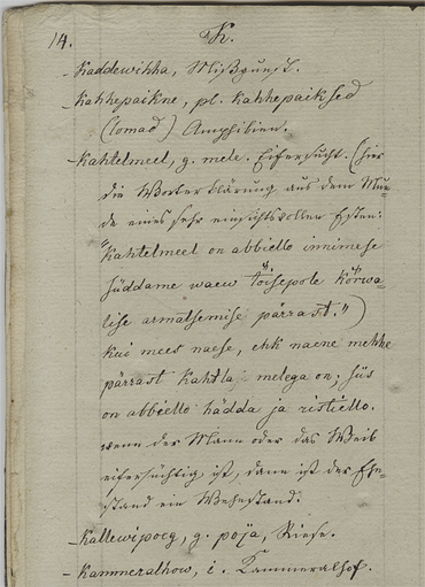 14. K.
- Kaddewihha, Mißgunst.
- Kahhepaikne, pl. kahhepaiksed
(lomad) Amphibien.
- Kahtelmeel, g. mele. Eifersucht. (hier
die Worterklärung aus dem Mun=
de eines sehr einsichtsvollen Esten:
"Kahtelmeel on abbiello innimese
süddame waew töisepole körwa=
lise armatsemise pärrast.")
kui mees naese, ehk naene mehhe
pärrast kahtlase melega on; siis
on abbiello hädda ja ristiello.
wenn der Mann oder das Weib
eifersüchtig ist, dann ist der Ehe=
stand ein Wehestand.
- Kallewipoeg, g. poja, Riese.
- Kammeralhow, i. Kammeralhof.